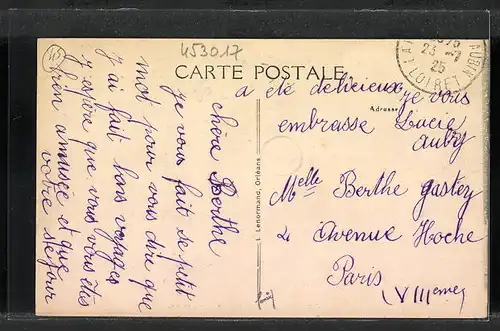 453017
CARTE POSTALE
23 -7
25
LOIRET
Adresse
chère Berthe
je vous fait se petit
mot pour vous dire que
j'ai fait bons voyages
j'espère que vous vous êtes
bien amusée et que
votre sejour
a été delicieux je vous
embrasse Lucie
Aubry
L. Lenormand, Orléans
Melle Berthe Gastey
2 Avenue Hoche
Paris
(VIIIeme)